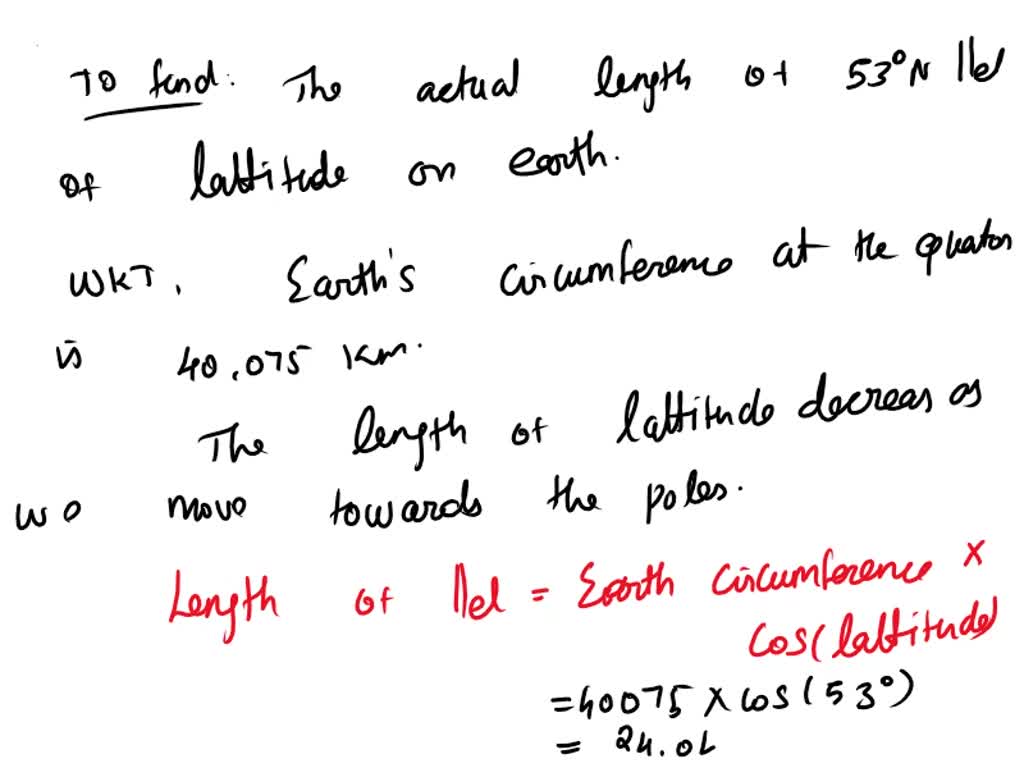 To find: The actual length of 53°N llel
of lattitude on earth.
WKT, Earth's circumference at the equator
is 40,075 Km.
The length of lattitude decreas as
we move towards the poles.
Length of llel = Earth circumference ×
cos(lattitude)
= 40075 × cos(53°)
= 24.06